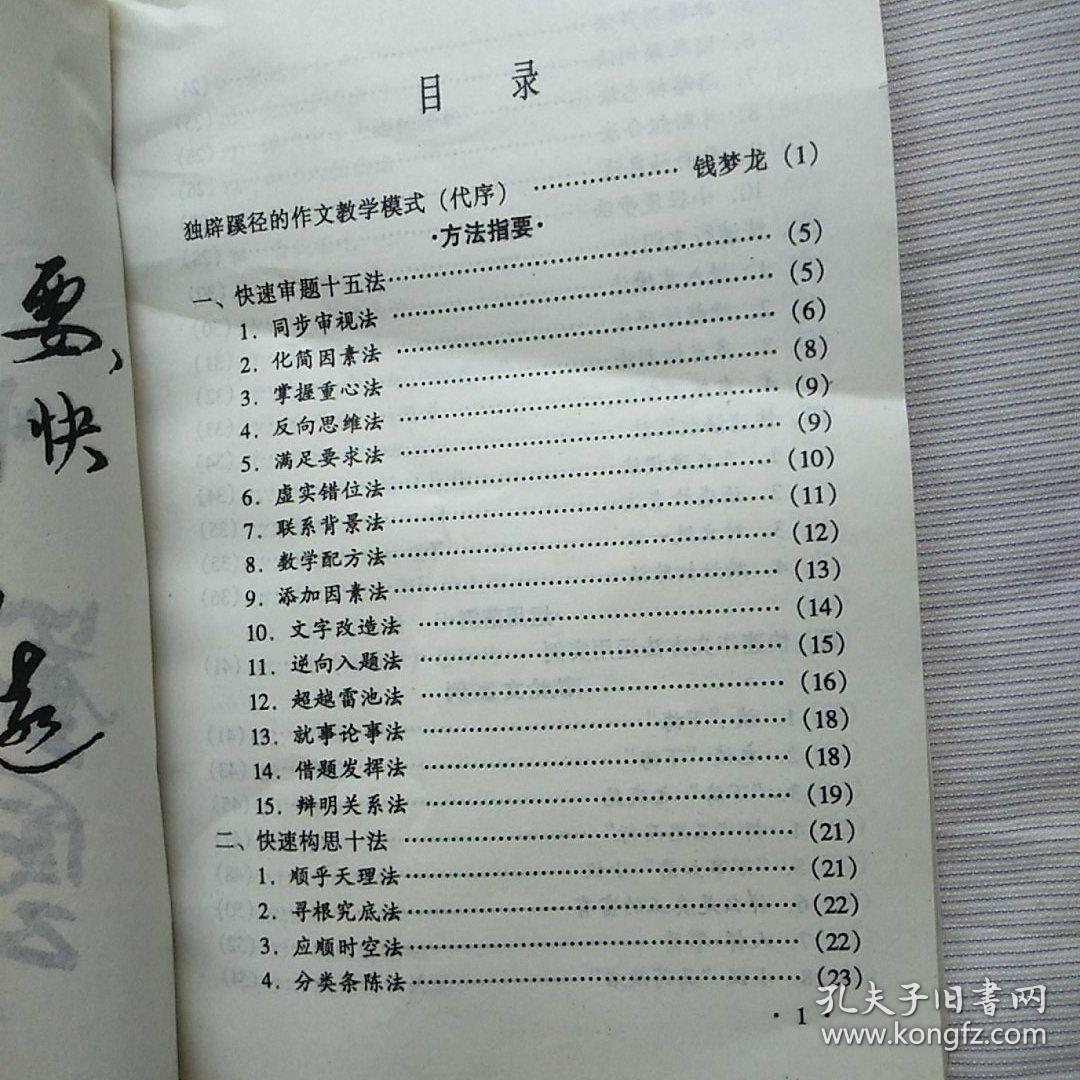 目 录
独辟蹊径的作文教学模式（代序） ……………… 钱梦龙（1）
·方法指要·
一、快速审题十五法……………………………………（5）
1．同步审视法 ……………………………………（5）
2．化简因素法 ……………………………………（6）
3．掌握重心法 ……………………………………（8）
4．反向思维法 ……………………………………（9）
5．满足要求法 ……………………………………（9）
6．虚实错位法……………………………………（10）
7．联系背景法……………………………………（11）
8．数学配方法……………………………………（12）
9．添加因素法……………………………………（13）
10．文字改造法 …………………………………（14）
11．逆向入题法 …………………………………（15）
12．超越雷池法 …………………………………（16）
13．就事论事法 …………………………………（18）
14．借题发挥法 …………………………………（18）
15．辩明关系法 …………………………………（19）
二、快速构思十法 ……………………………………（21）
1．顺乎天理法……………………………………（21）
2．寻根究底法……………………………………（22）
3．应顺时空法……………………………………（22）
4．分类条陈法……………………………………（23）
· 1 ·
要、
快
孔夫子旧书网
www.kongfz.com